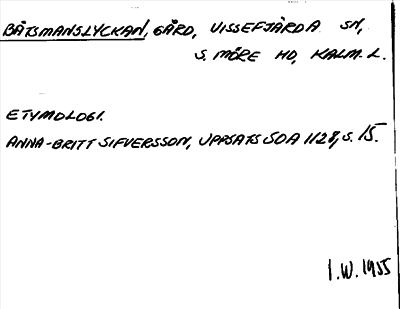 BÅTSMANSLYCKAN, GÅRD, VISSEFJÄRDA SN,
S. MÖRE HD, KALM. L.
ETYMOLOGI.
ANNA-BRITT SIFVERSSON, UPPSATS SOA 1128, S. 15.
I.W. 1955